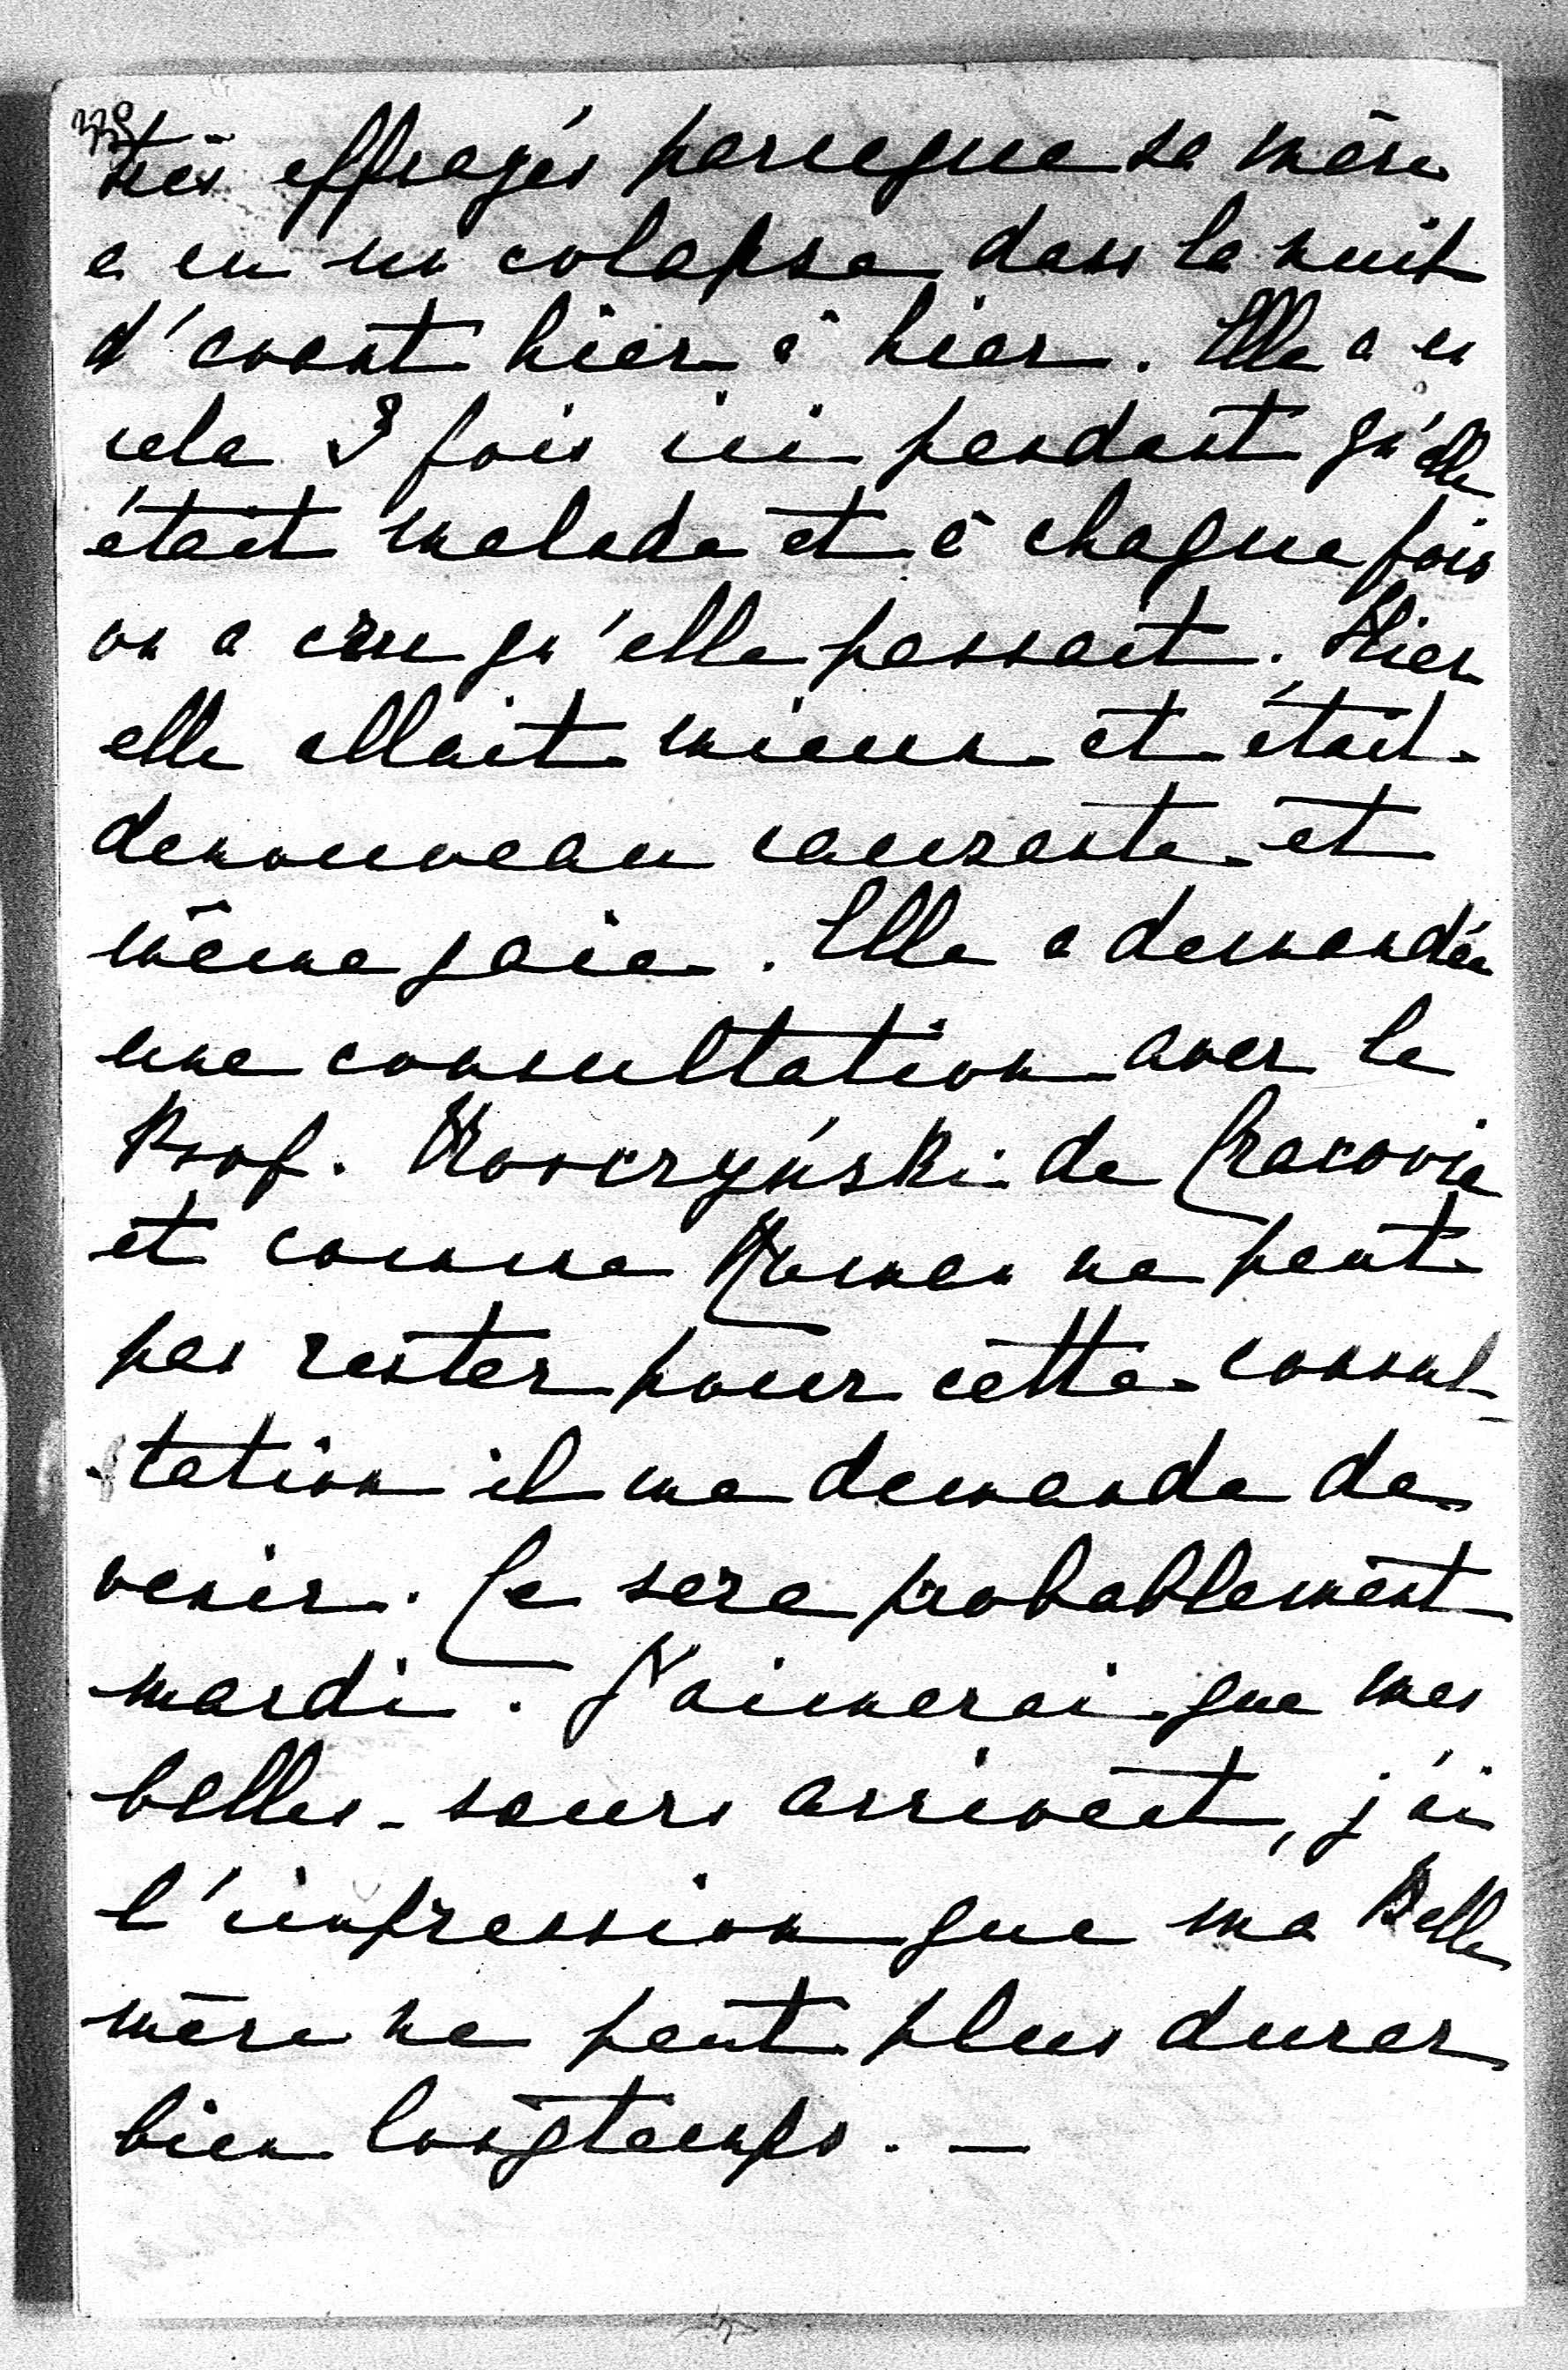 très effrayés parceque sa mère
a eu un colapse dans la nuit
d'avant hier à hier. Elle a eu
cela 3 fois ici pendant qu'elle
était malade et à chaque fois
on a cru qu'elle passait. Hier
elle allait mieux et était
denouveau causante et
même gaie. Elle a demandée
une consultation avec le
Prof. Korczyński de Cracovie
et comme Roman ne peut
pas rester pour cette consul-
-tation il me demande de
venir. Ce sera probablement
mardi. J'aimerai que mes
belles-sœurs arrivent, j'ai
l'impression que ma Belle
mère ne peut plus durer
bien longtemps. —